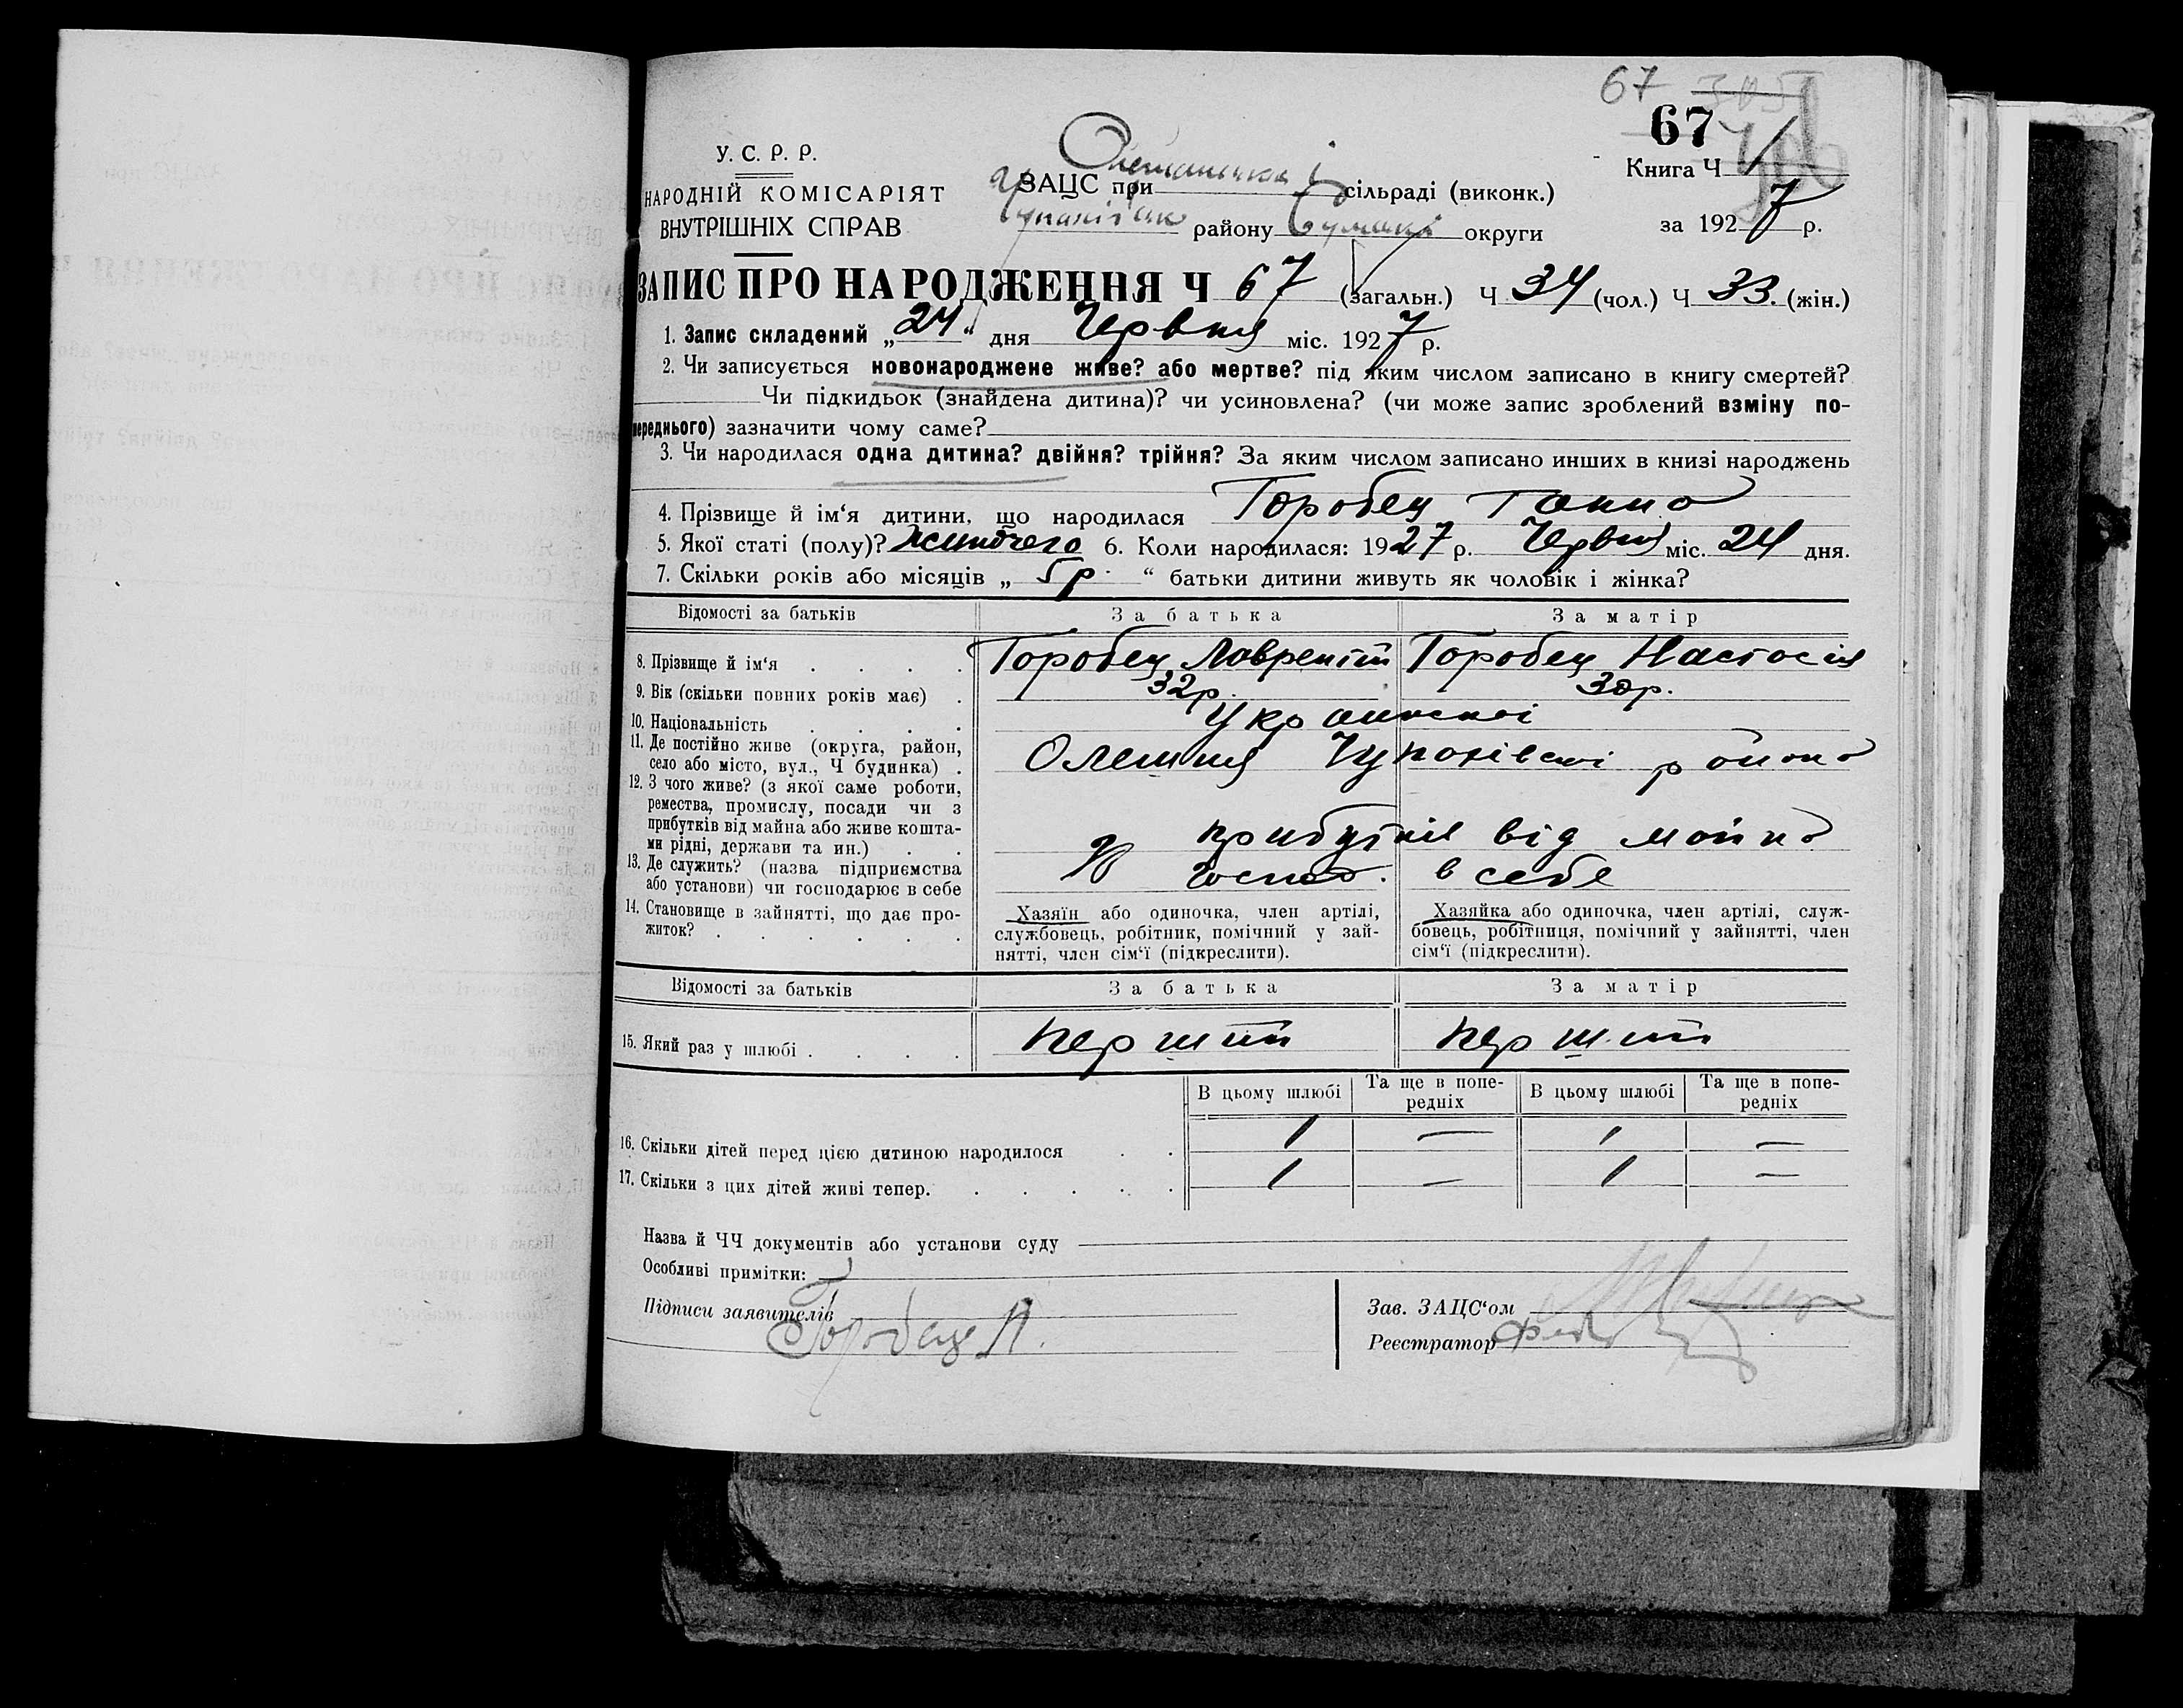 67
67
У. С. Р. Р.
Книга Ч
НАРОДНІЙ КОМІСАРІЯТ
ЗАЦС при сільраді (виконк.)
ВНУТРІШНІХ СПРАВ
району Сумської округи
за 1927 р.
ЗАПИС ПРО НАРОДЖЕННЯ Ч 67 (загальн.) Ч 34 (чол.) Ч 33. (жін.)
1. Запис складений „24“ дня Червня міс. 1927 р.
2. Чи записується новонароджене живе? або мертве? під яким числом записано в книгу смертей?
Чи підкидьок (знайдена дитина)? чи усиновлена? (чи може запис зроблений взміну по-
переднього) зазначити чому саме?
3. Чи народилася одна дитина? двійня? трійня? За яким числом записано инших в книзі народжень
4. Прізвище й ім‘я дитини, що народилася Горобец Ганна
5. Якої статі (полу)? жиночего 6. Коли народилася: 1927 р. Червня міс. 24 дня.
7. Скільки років або місяців „ 5 р. “ батьки дитини живуть як чоловік і жінка?
Відомості за батьків За батька За матір
8. Прізвище й ім‘я . . . . Горобец Лаврентій Горобец Настасія
9. Вік (скільки повних років має) . 32 р. 30 р.
10. Національність . . . . Українські
11. Де постійно живе (округа, район,
село або місто, вул., Ч будинка) . Олешня Чупахівскі району
12. З чого живе? (з якої саме роботи,
ремества, промислу, посади чи з
прибутків від майна або живе кошта-
ми рідні, держави та ин.) . . прибутків від майна
13. Де служить? (назва підприємства
або установи) чи господарює в себе Господ. в себе
14. Становище в зайнятті, що дає про-
житок? . . . . . .
Хазяїн або одиночка, член артілі,
службовець, робітник, помічний у зай-
нятті, член сім‘ї (підкреслити).
Хазяйка або одиночка, член артілі, служ-
бовець, робітниця, помічний у зайнятті, член
сім‘ї (підкреслити).
Відомості за батьків За батька За матір
15. Який раз у шлюбі . . . . перший перший
В цьому шлюбі Та ще в попе-
редніх В цьому шлюбі Та ще в попе-
редніх
16. Скільки дітей перед цією дитиною народилося . . 1 — 1 —
17. Скільки з цих дітей живі тепер. . . . . . 1 — 1 —
Назва й ЧЧ документів або установи суду
Особливі примітки:
Підписи заявителів Горобець Л.
Зав. ЗАЦС‘ом
Реєстратор